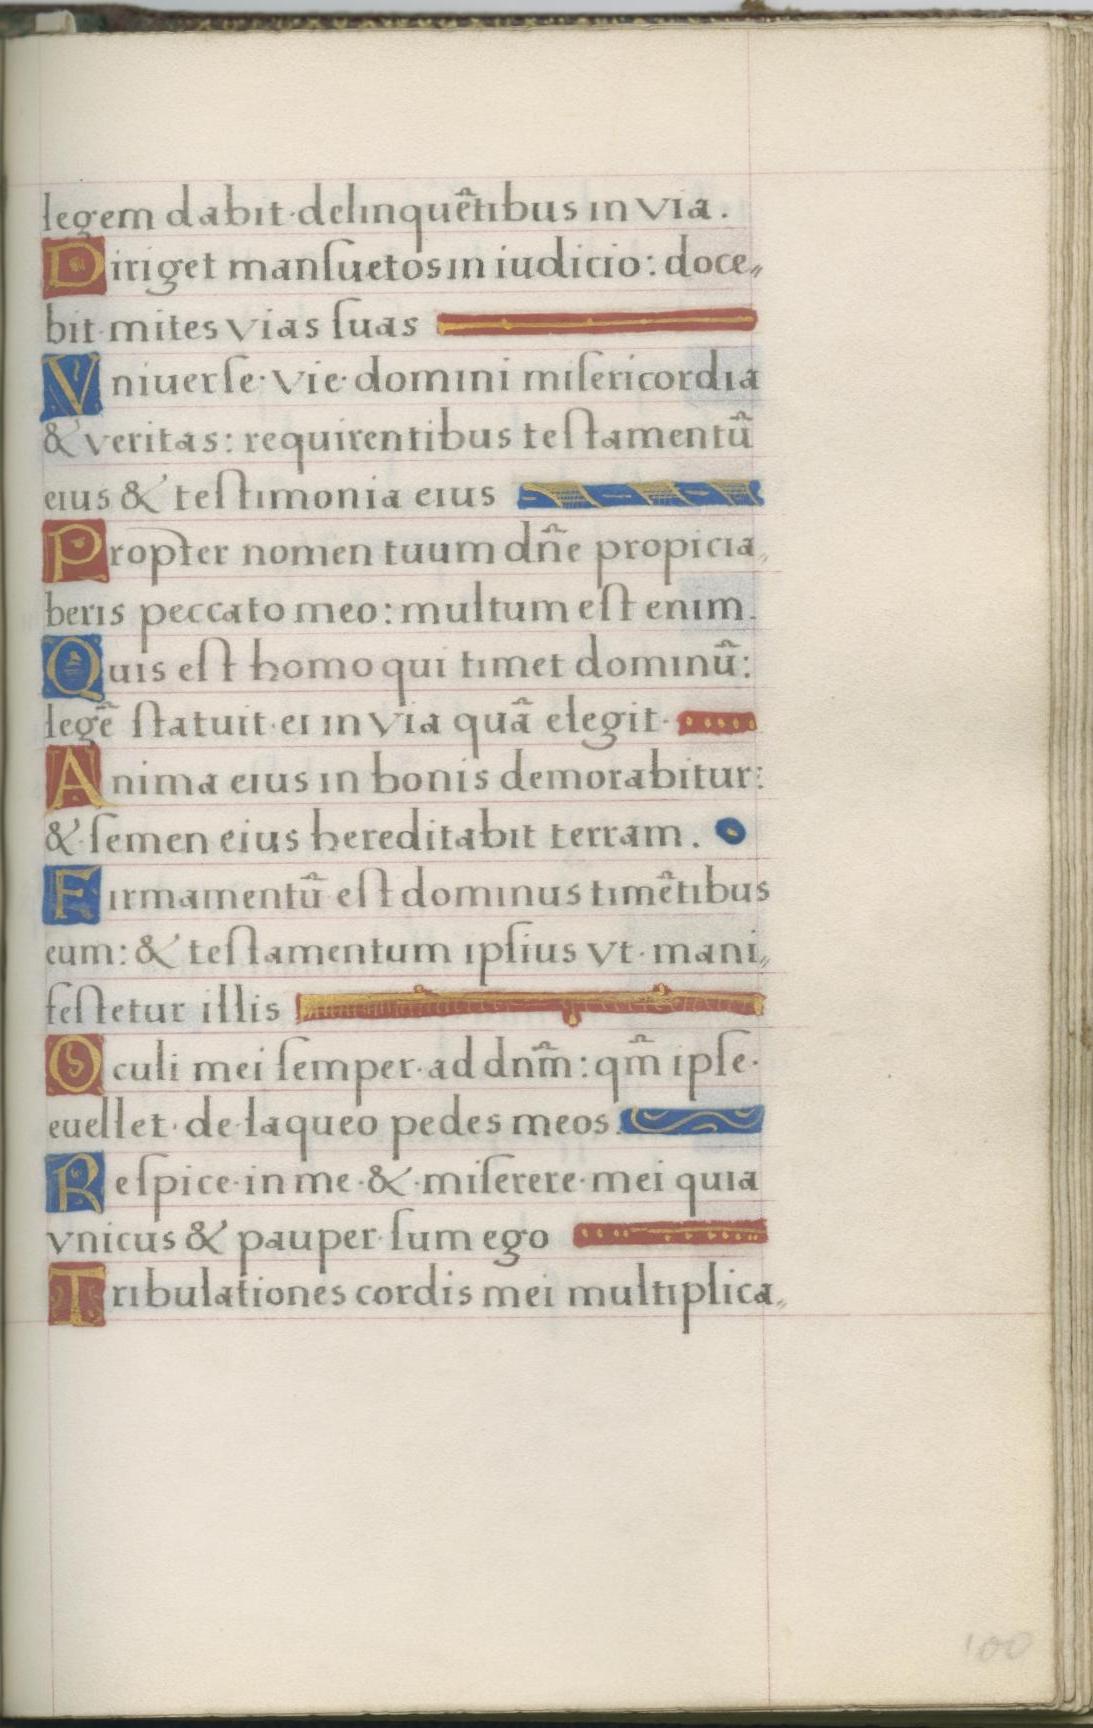 legem dabit·delinquẽtibus in via.
Diriget manſuetos in iudicio: doce„
bit·mites vias ſuas
Vniuerſe·vie·domini miſericordia
& veritas: requirentibus teſtamentũ
eius & teſtimonia eius
Propter nomen tuum dñe propicia„
beris peccato meo: multum eſt enim.
Quis eſt homo qui timet dominũ:
legẽ ſtatuit·ei in via quã elegit·
Anima eius in bonis demorabitur:
&·ſemen eius hereditabit terram.
Firmamentũ eſt dominus timẽtibus
eum: & teſtamentum ipſius vt·mani„
feſtetur illis
Oculi mei ſemper·ad dnm̃: qm̃ ipſe·
euellet·de·laqueo pedes meos.
Reſpice·in me·&·miſerere·mei quia
vnicus & pauper·ſum ego
Tribulationes cordis mei multiplica„
100